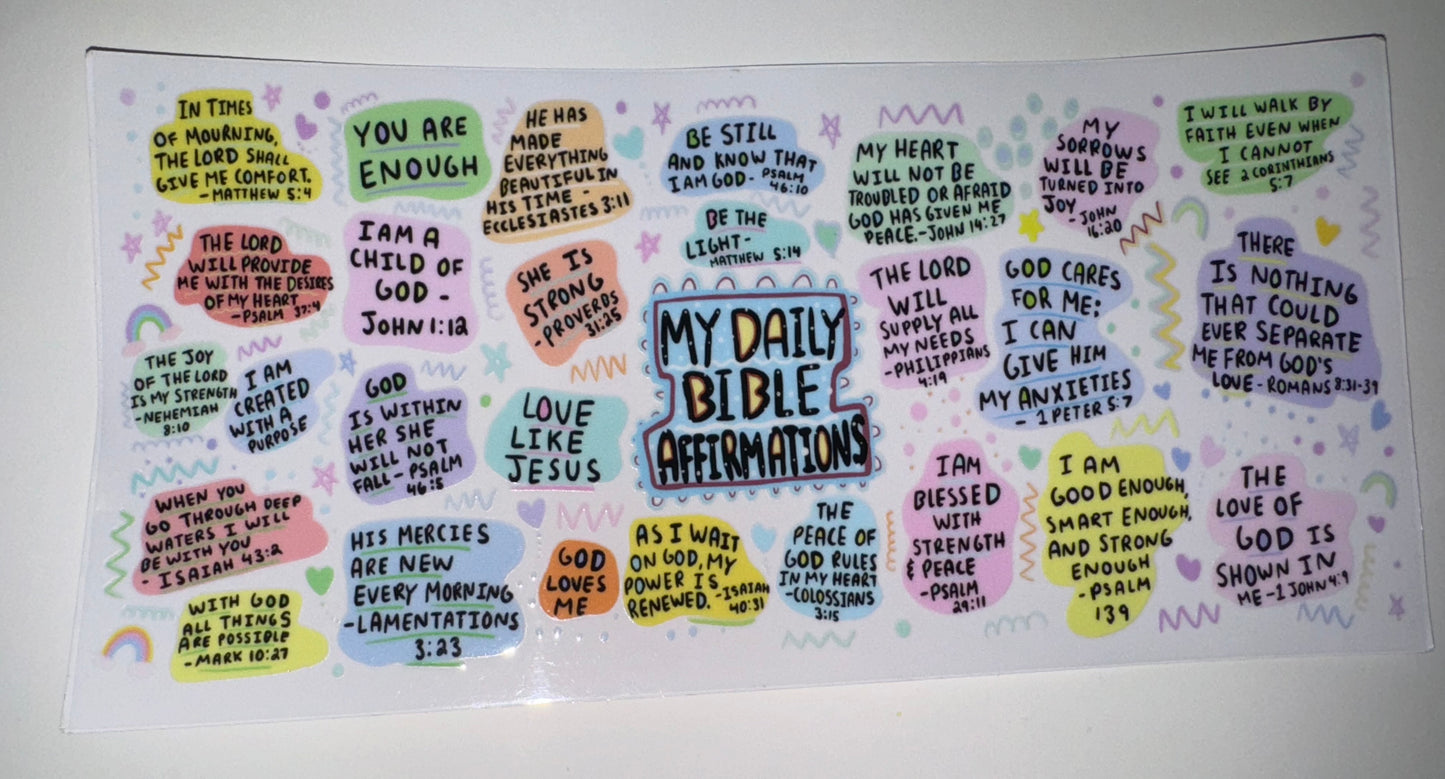 IN TIMES
OF MOURNING,
THE LORD SHALL
GIVE ME COMFORT.
- MATTHEW 5:4
YOU ARE
ENOUGH
HE HAS
MADE
EVERYTHING
BEAUTIFUL IN
HIS TIME -
ECCLESIASTES 3:11
BE STILL
AND KNOW THAT
I AM GOD - PSALM
46:10
MY HEART
WILL NOT BE
TROUBLED OR AFRAID
GOD HAS GIVEN ME
PEACE. - JOHN 14:27
MY
SORROWS
WILL BE
TURNED INTO
JOY
- JOHN
16:20
I WILL WALK BY
FAITH EVEN WHEN
I CANNOT
SEE 2 CORINTHIANS
5:7
THE LORD
WILL PROVIDE
ME WITH THE DESIRES
OF MY HEART
- PSALM 37:4
I AM A
CHILD OF
GOD -
JOHN 1:12
SHE IS
STRONG
- PROVERBS
31:25
BE THE
LIGHT -
MATTHEW 5:14
MY DAILY
BIBLE
AFFIRMATIONS
THE LORD
WILL
SUPPLY ALL
MY NEEDS
- PHILIPPIANS
4:19
GOD CARES
FOR ME;
I CAN
GIVE HIM
MY ANXIETIES
- 1 PETER 5:7
THERE
IS NOTHING
THAT COULD
EVER SEPARATE
ME FROM GOD'S
LOVE - ROMANS 8:31-39
THE JOY
OF THE LORD
IS MY STRENGTH
- NEHEMIAH
8:10
I AM
CREATED
WITH A
PURPOSE
GOD
IS WITHIN
HER SHE
WILL NOT
FALL - PSALM
46:5
LOVE
LIKE
JESUS
WHEN YOU
GO THROUGH DEEP
WATERS I WILL
BE WITH YOU
- ISAIAH 43:2
HIS MERCIES
ARE NEW
EVERY MORNING
- LAMENTATIONS
3:23
GOD
LOVES
ME
AS I WAIT
ON GOD, MY
POWER IS
RENEWED. - ISAIAH
40:31
THE
PEACE OF
GOD RULES
IN MY HEART
- COLOSSIANS
3:15
I AM
BLESSED
WITH
STRENGTH
& PEACE
- PSALM
29:11
I AM
GOOD ENOUGH,
SMART ENOUGH,
AND STRONG
ENOUGH
- PSALM
139
THE
LOVE OF
GOD IS
SHOWN IN
ME - 1 JOHN 4:9
WITH GOD
ALL THINGS
ARE POSSIBLE
- MARK 10:27